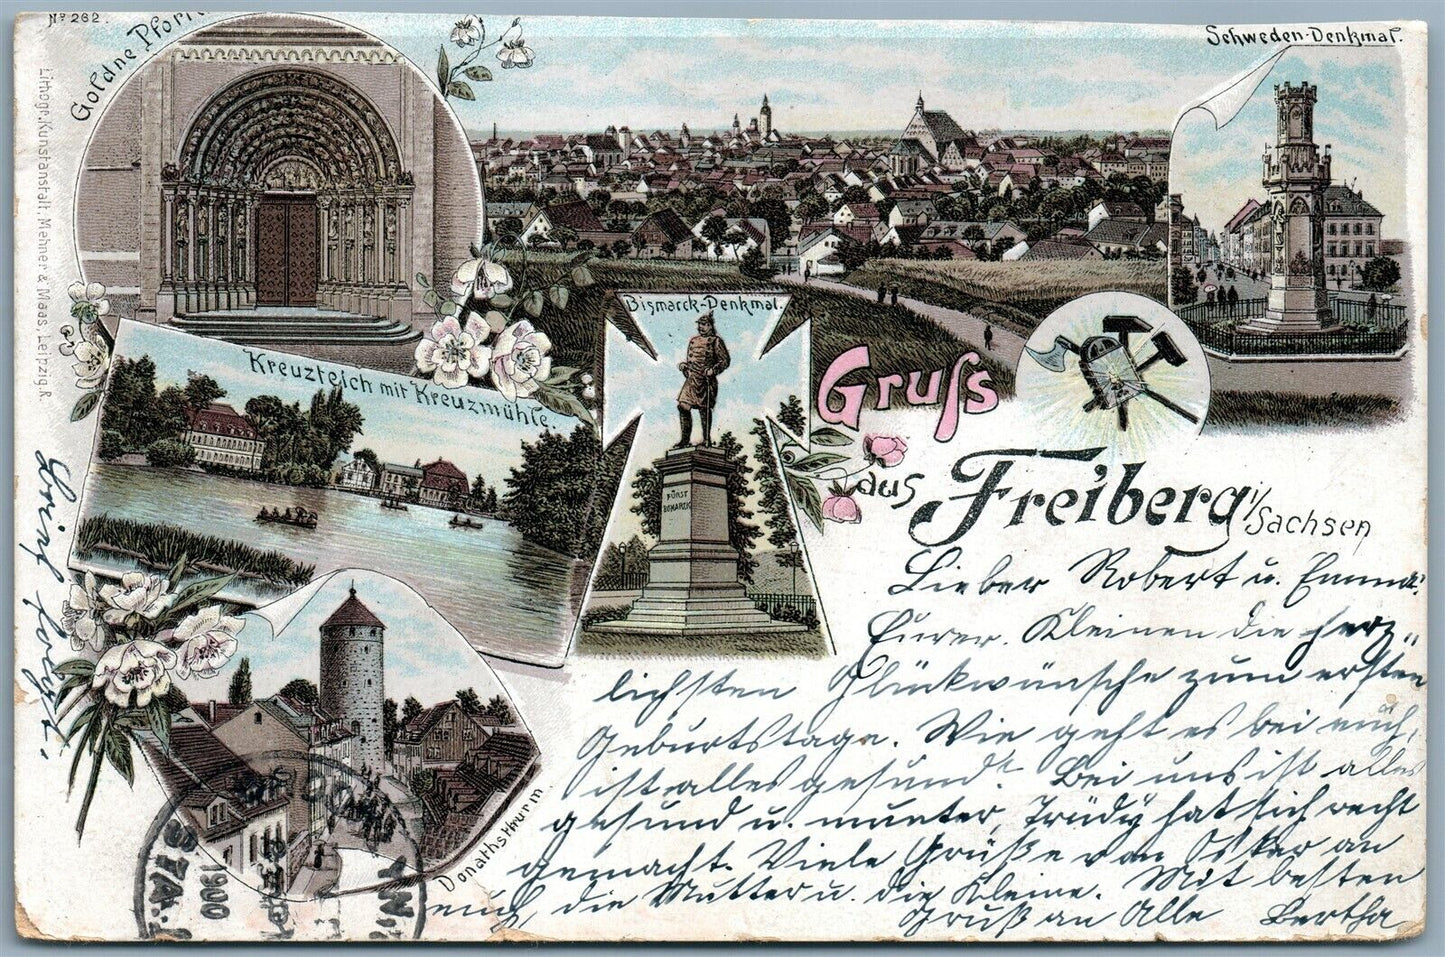 Nº 262.
Goldne Pforte
Schweden-Denkmal.
Lithogr. Kunstanstalt, Mehner & Maas, Leipzig. R.
Bismarck-Denkmal.
FÜRST
BISMARCK
Kreuzteich mit Kreuzmühle.
Donathsthurm
Gruſs
aus Freiberg i/Sachsen
Lieber Robert u. Emma!
Eurer Kleinen die herz-
lichsten Glückwünsche zum ersten
Geburtstage. Wie geht es bei euch,
ist alles gesund? Bei uns ist alles
gesund u. munter, Trudy hat sich recht
gemacht. Viele Grüße von Oskar an
euch, die Mutter u. die Kleine. Mit besten
Gruß an Alle Bertha
STA.
1900
N.Y.